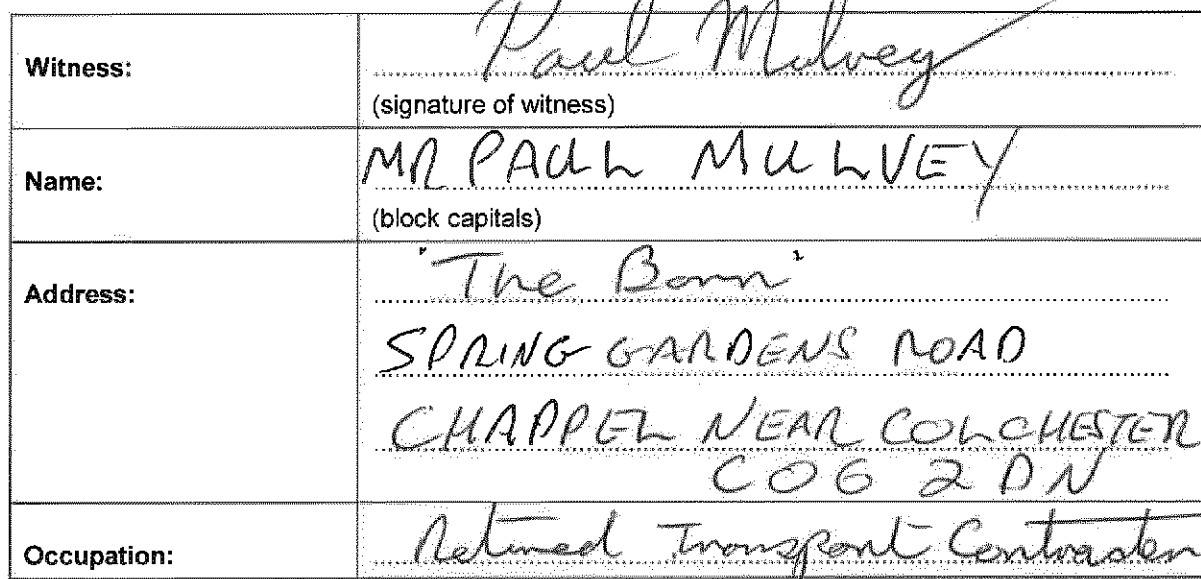 Witness: Paul Mulvey
(signature of witness)
Name: MR PAUL MULVEY
(block capitals)
Address: 'The Barn'
SPRING GARDENS ROAD
CHAPPEL NEAR COLCHESTER
CO6 2DN
Occupation: Retired Transport Contractor